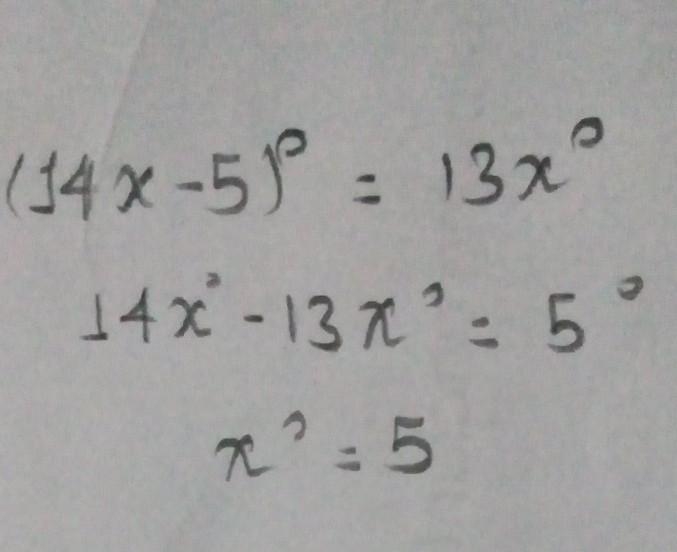 (14x-5)° = 13x°
14x° - 13x° = 5°
x° = 5